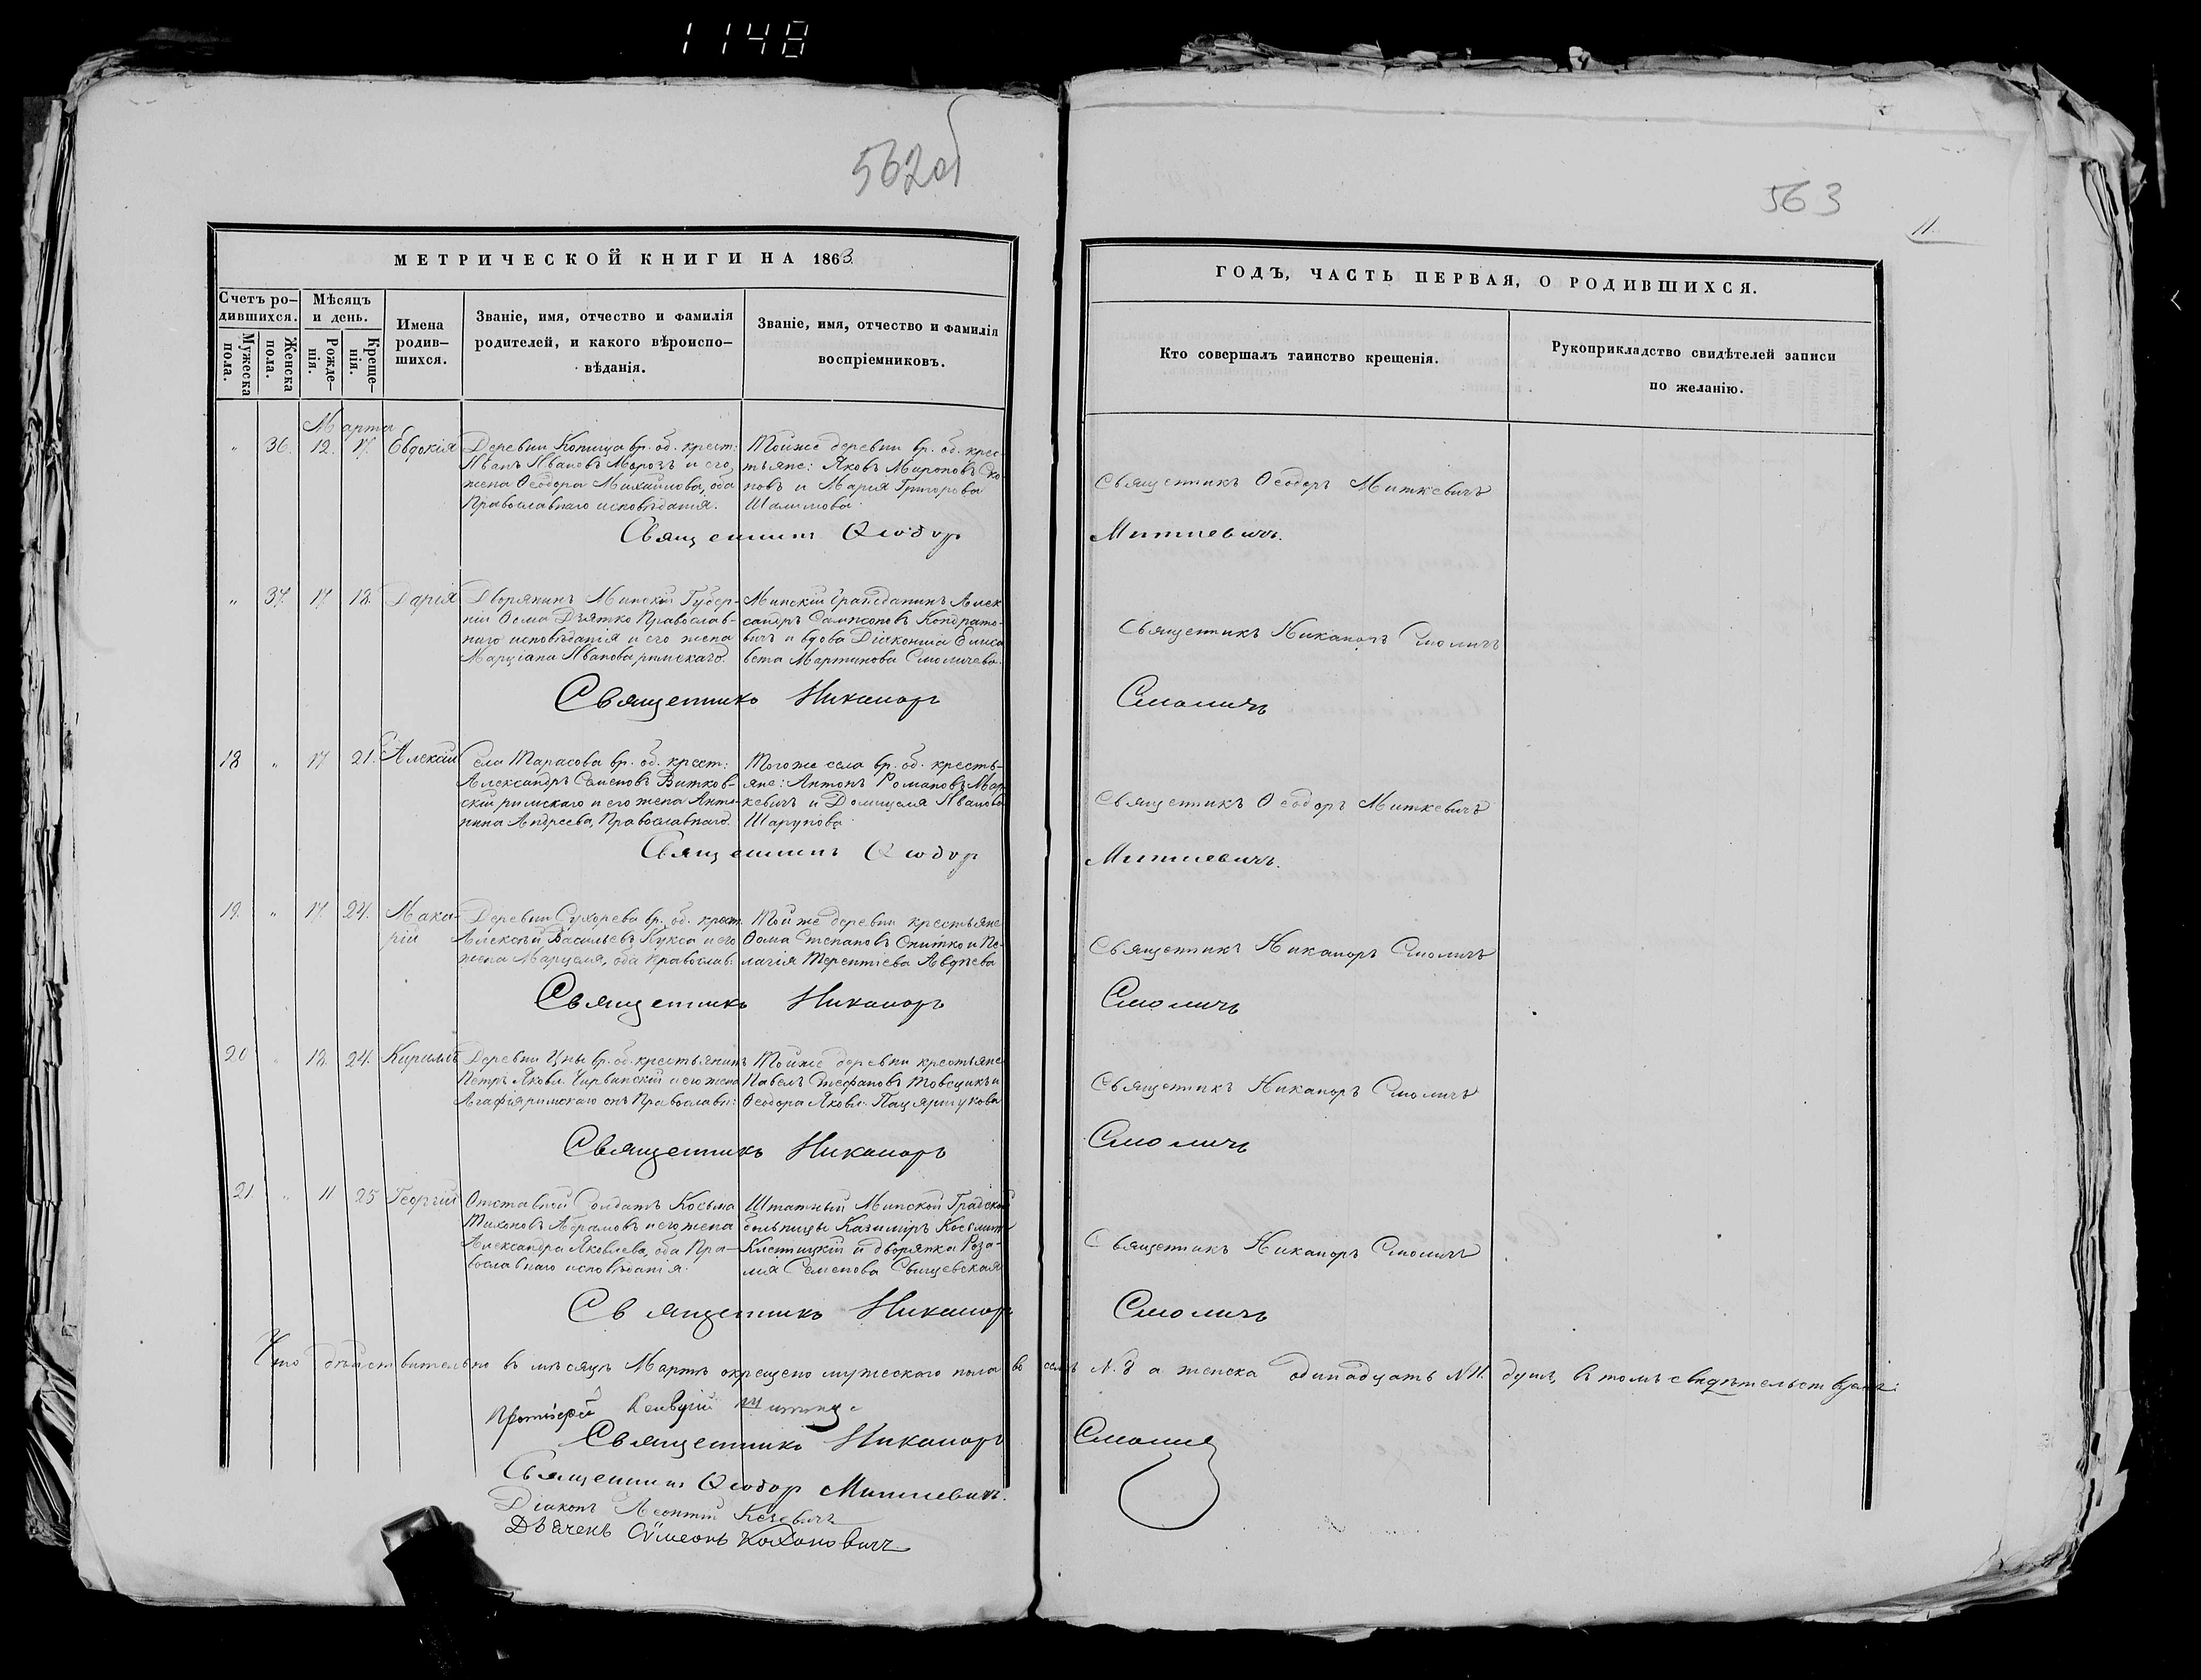 1148
562об
563
11.
МЕТРИЧЕСКОЙ КНИГИ НА 1863
ГОДЪ, ЧАСТЬ ПЕРВАЯ, О РОДИВШИХСЯ.
Счетъ ро-
дившихся.
Мужеска
пола.
Женска
пола.
Мѣсяцъ
и день.
Рожде-
нія.
Креще-
нія.
Имена
родив-
шихся.
Званіе, имя, отчество и фамилія
родителей, и какого вѣроиспо-
вѣданія.
Званіе, имя, отчество и фамилія
воспріемниковъ.
Кто совершалъ таинство крещенія.
Рукоприкладство свидѣтелей записи
по желанію.
Марта
" 36. 12. 17. Евдокія
Деревни Копища вр. об. крест:
Иванъ Ивановъ Морозъ и его
жена Ѳеодора Михайлова, оба
Православнаго исповѣданія.
Тойже деревни вр. об. крес-
тьяне: Яковъ Мироновъ Ско-
повъ и Марія Григорова
Шалимова
Священникъ Ѳеодоръ Миткевичъ
Священникъ Ѳеодоръ Миткевичъ.
" 37. 17. 18. Дарія
Дворянинъ Минской Губер-
ніи Ѳома Дзятко Православ-
наго исповѣданія и его жена
Марціана Иванова римскаго.
Минскій Гражданинъ Алек
сандръ Сампсоновъ Кондрато-
вичъ и вдова Діаконша Елиса
вета Мартинова Смоличева.
Священникъ Никаноръ Смоличъ
Священникъ Никаноръ Смоличъ
18 " 17 21. Алексій
Села Тарасова вр. об. крест:
Александръ Семеновъ Витков-
скій римскаго и его жена Анто-
нина Андреева, Православнаго.
Тогоже села вр. об. кресть-
яне: Антонъ Романовъ Мар
кевичъ и Домицеля Иванова
Шарупова
Священникъ Ѳеодоръ Миткевичъ
Священникъ Ѳеодоръ Миткевичъ.
19. " 17. 24. Мака-
рій
Деревни Сухорева вр. об. крест.
Алексѣй Васильевъ Кукса и его
жена Марцеля, оба Православ:
Тойже деревни крестьяне
Ѳома Степановъ Снитко и Пе-
лагія Терентіева Авдѣева
Священникъ Никаноръ Смоличъ
Священникъ Никаноръ Смоличъ
20 " 18. 24. Кириллъ
Деревни Цны вр. об. крестьянинъ
Петръ Яковл. Чирвинскій и его жена
Агафія римскаго онъ Православн:
Тойже деревни крестьяне
Павелъ Стефановъ Товсцикъ и
Ѳеодора Яковл. Пацяршукова
Священникъ Никаноръ Смоличъ
Священникъ Никаноръ Смоличъ
21. " 11. 25 Георгій
Отставной Солдатъ Косьма
Тихоновъ Абрамовъ и его жена
Александра Яковлева, оба Пра-
вославнаго исповѣданія.
Штатный Минской Градской
больницы Казиміръ Косьмин
и дворянка Роза-
лія Семенова Свищевская
Священникъ Никаноръ Смоличъ
Священникъ Никаноръ Смоличъ
Что дѣйствительно въ мѣсяцѣ Мартѣ окрещено мужескаго пола восемь N. 8 а женска одинадцать N 11. душъ, въ томъ свидѣтельствуемъ:
Протоіерей
Священникъ Никаноръ Смоличъ
Священникъ Ѳеодоръ Миткевичъ.
Діаконъ Леонтій
Дьячекъ Сѵмеонъ Кохановичъ